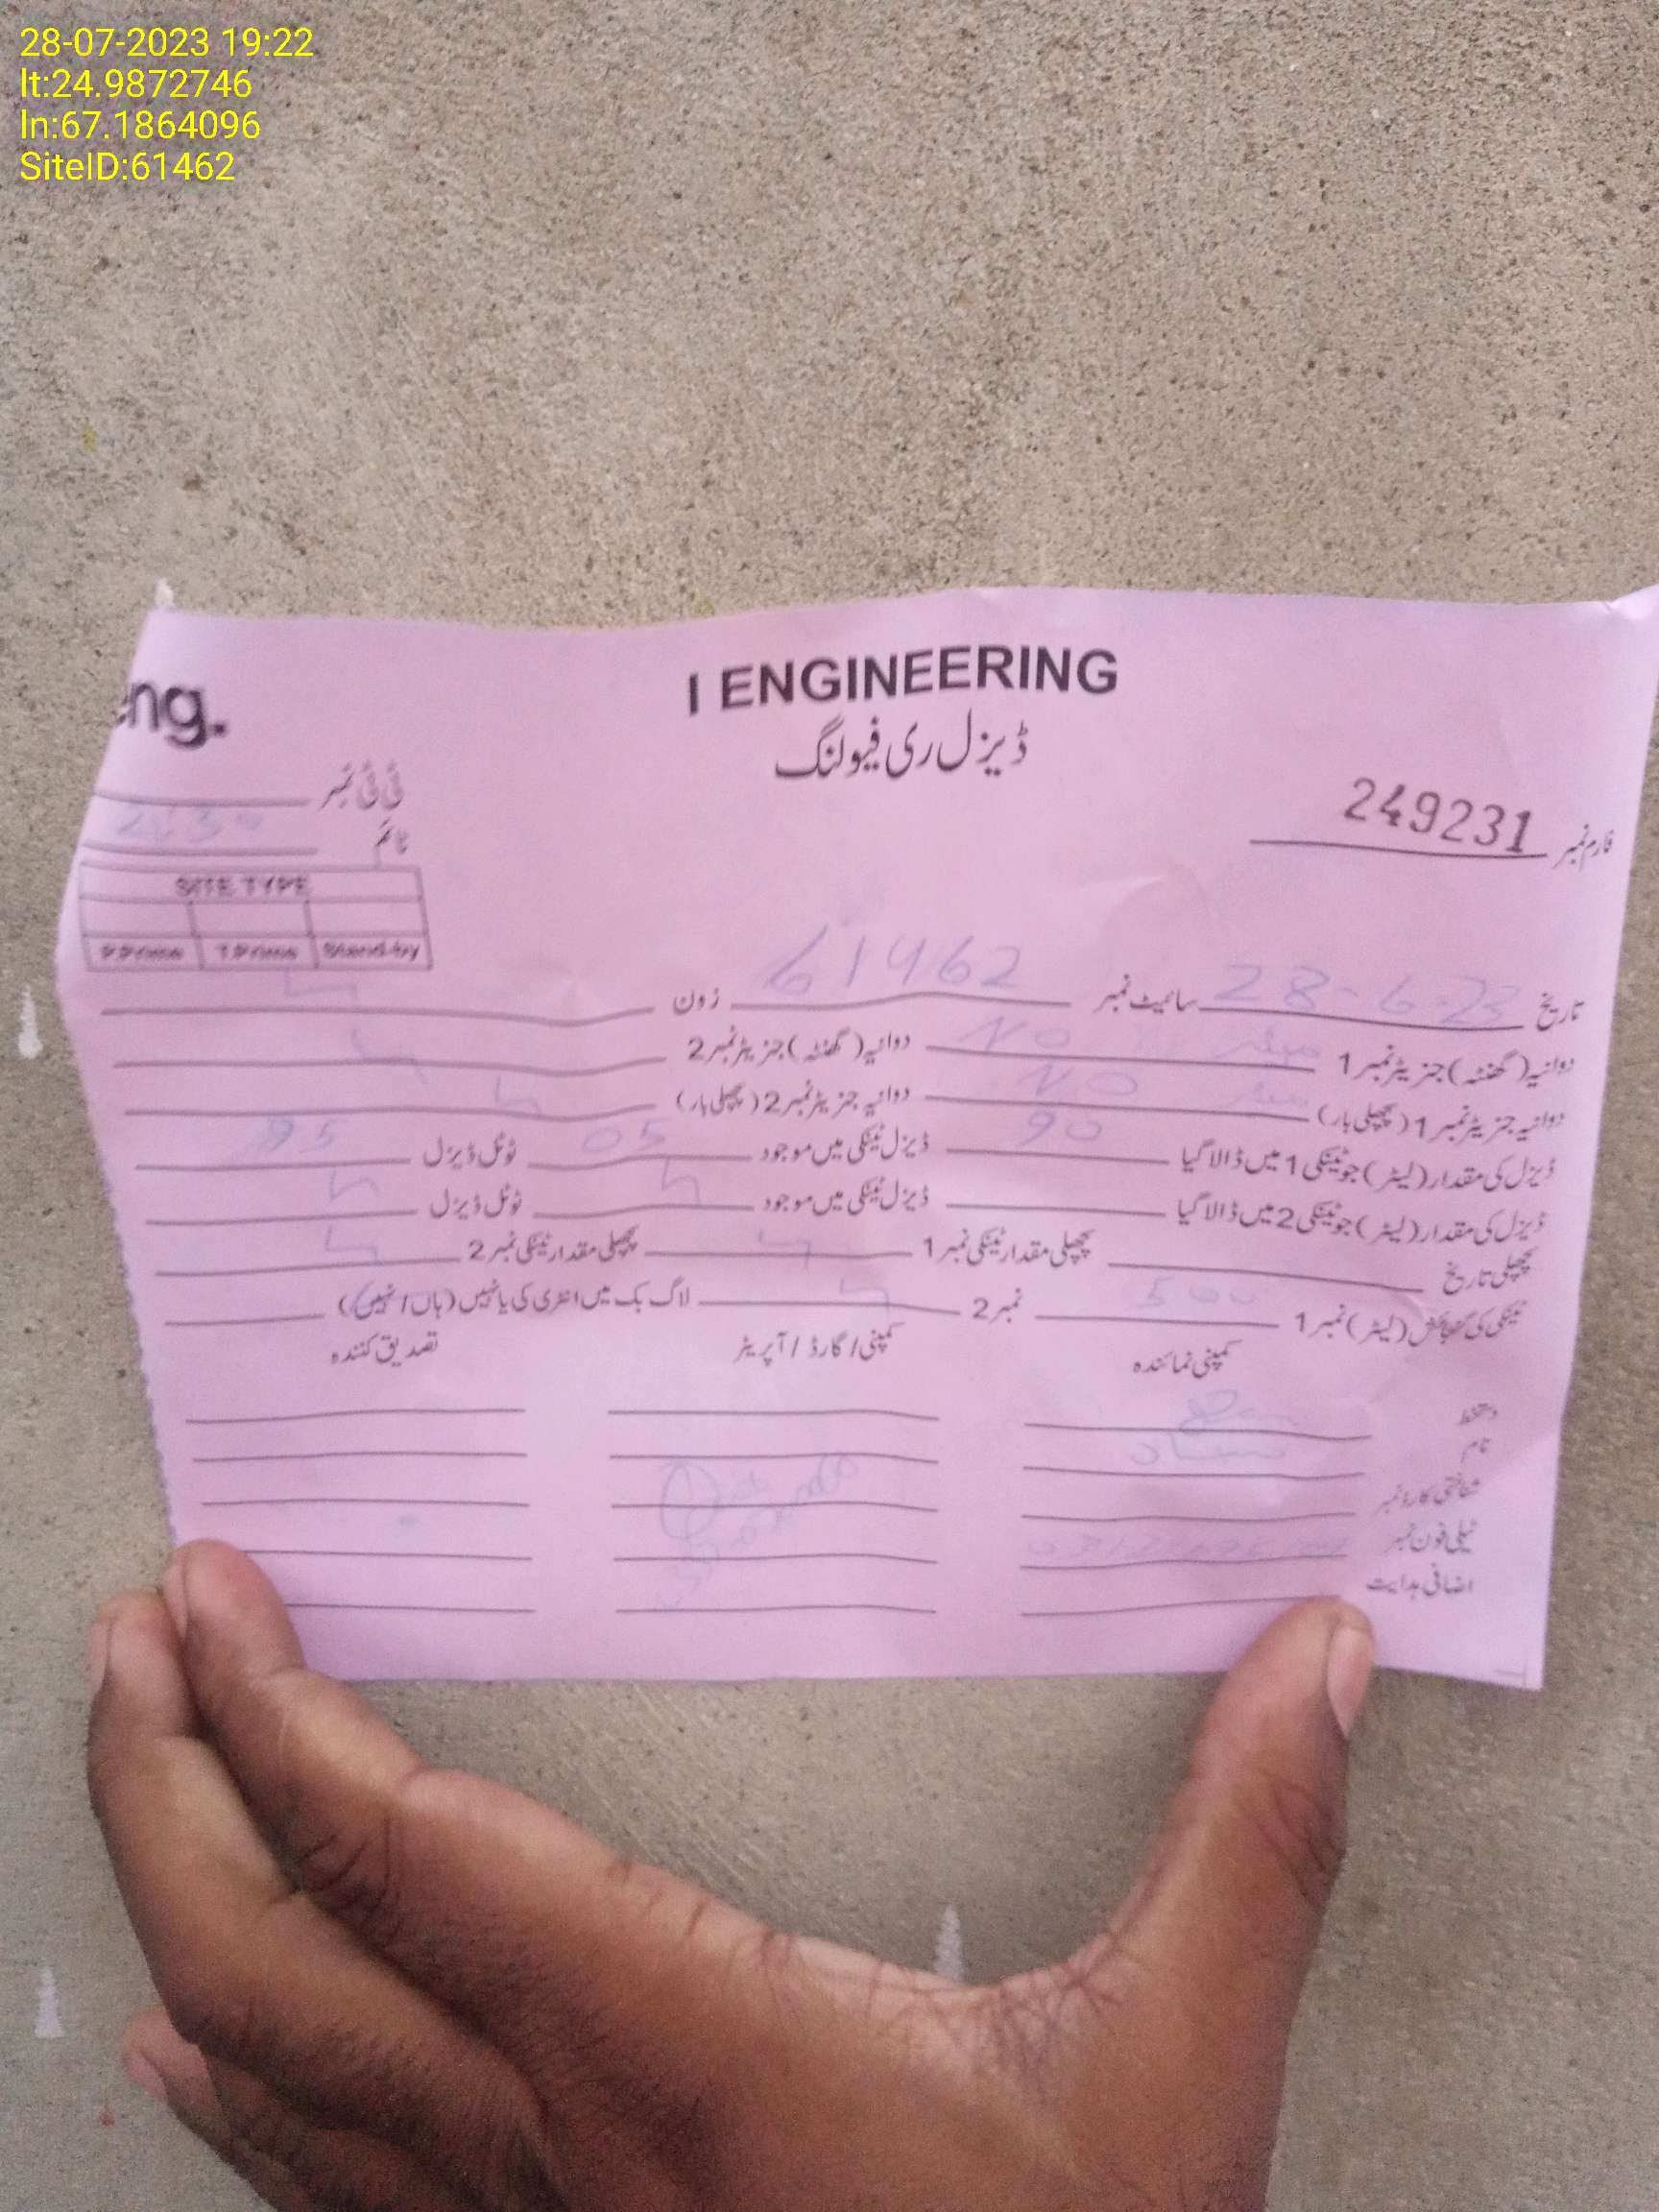 28-07-2023 19:22
lt:24.9872746
ln:67.1864096
SiteID:61462
I ENGINEERING
ng.
ڈیزل ری فیولنگ
فارم نمبر 249231
ٹی ٹی نمبر
ٹائم
SITE TYPE
P Prime T Prime Stand-by
تاریخ 28-6-23 سائیٹ نمبر 61462 زون
دوانیہ (گھنٹہ) جنریٹر نمبر 1 میٹر NO دوانیہ (گھنٹہ) جنریٹر نمبر 2
دوانیہ جنریٹر نمبر 1 (پچھلی بار) NO دوانیہ جنریٹر نمبر 2 (پچھلی بار)
ڈیزل کی مقدار (لیٹر) جو ٹینکی 1 میں ڈالا گیا 90 ڈیزل ٹینکی میں موجود 05 ٹوٹل ڈیزل 95
ڈیزل کی مقدار (لیٹر) جو ٹینکی 2 میں ڈالا گیا ڈیزل ٹینکی میں موجود ٹوٹل ڈیزل
پچھلی تاریخ پچھلی مقدار ٹینکی نمبر 1 پچھلی مقدار ٹینکی نمبر 2
ٹینکی کی گنجائش (لیٹر) نمبر 1 500 نمبر 2 لاگ بک میں انٹری کی یا نہیں (ہاں / نہیں)
کمپنی نمائندہ کمپنی / گارڈ / آپریٹر تصدیق کنندہ
دستخط
نام
شناختی کارڈ نمبر
ٹیلی فون نمبر
اضافی ہدایت